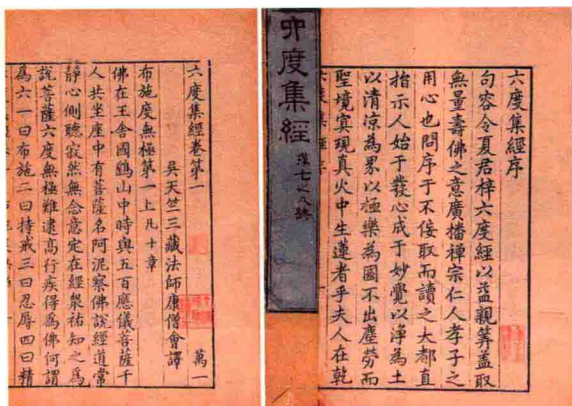 六度集經序
句容令夏君梓六度經以益親筭蓋取
無量壽佛之意廣播禪宗仁人孝子之
用心也問序于不佞取而讀之大都直
指示人始于發心成于妙覺以淨為土
以清涼為界以極樂為國不出塵勞而
聖境寘現真火中生蓮者乎夫人在乾
六度集經
六度集經卷第一 萬一
吳天竺三藏法師康僧會譯
布施度無極第一上凡十章
佛在王舍國鷂山中時與五百應儀菩薩千
人共坐座中有菩薩名阿泥察佛說經道常
靜心側聽寂然無念意定在經衆祐知之為
說菩薩六度無極難逮高行疾得為佛何謂
為六一曰布施二曰持戒三曰忍辱四曰精